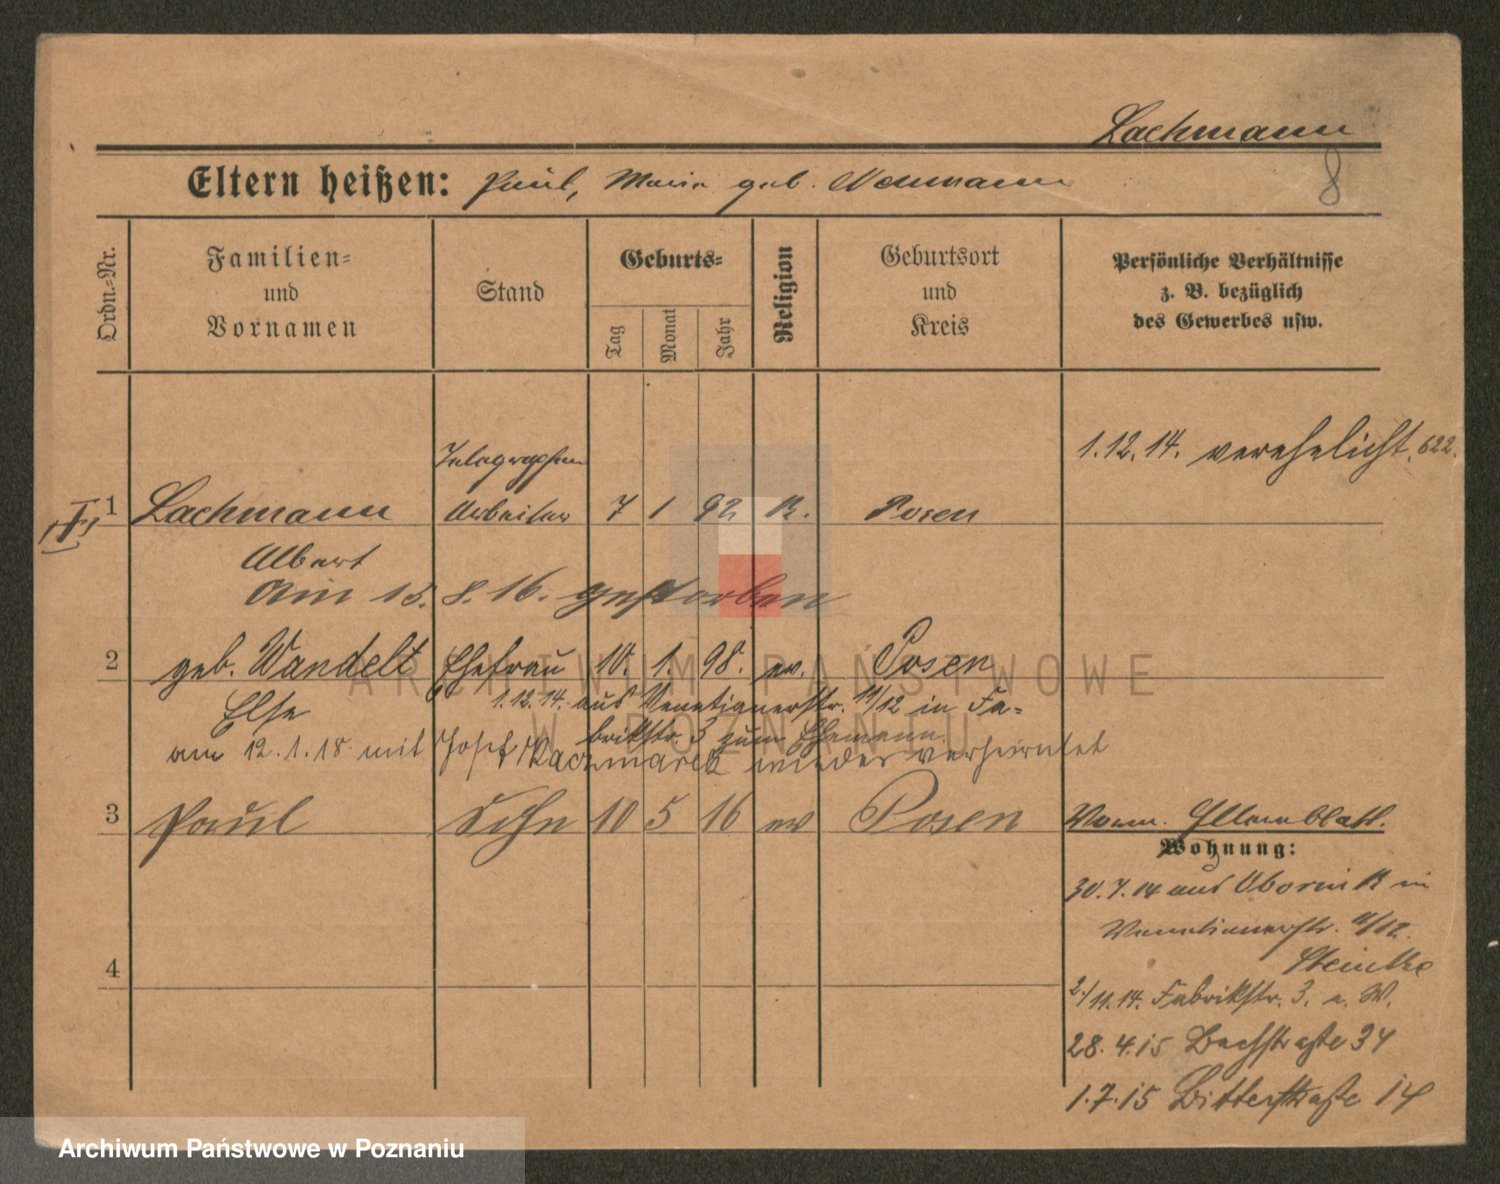 Lachmann
8
Eltern heißen: Paul, Maria geb. Neumann
Ordn.-Nr.
Familien-
und
Vornamen
Stand
Geburts-
Tag
Monat
Jahr
Religion
Geburtsort
und
Kreis
Persönliche Verhältnisse
z. B. bezüglich
des Gewerbes usw.
1.12.14. verehelicht. 622.
Telegraphen
1 Lachmann Arbeiter 7 1 92 K. Posen
Albert
am 15. 8. 16. gestorben
2 geb. Wandelt Ehefrau 10. 1. 98. ev. Posen
Else 1.12.14. aus Venetianerstr. 11/12 in Fa-
brikstr. 3 zum Ehemann.
am 12.1.18 mit Josef Kaczmarek wieder verheiratet
3 Paul Sohn 10 5 16 ev Posen
Wohnung:
30.7.14 aus Obornik in
Venetianerstr. 11/12.
Steinke
2/11.14. Fabrikstr. 3. b. W.
28.4.15 Bachstraße 34
1.7.15 Bitterstraße 14
4
ARCHIWUM PAŃSTWOWE
W POZNANIU
Archiwum Państwowe w Poznaniu